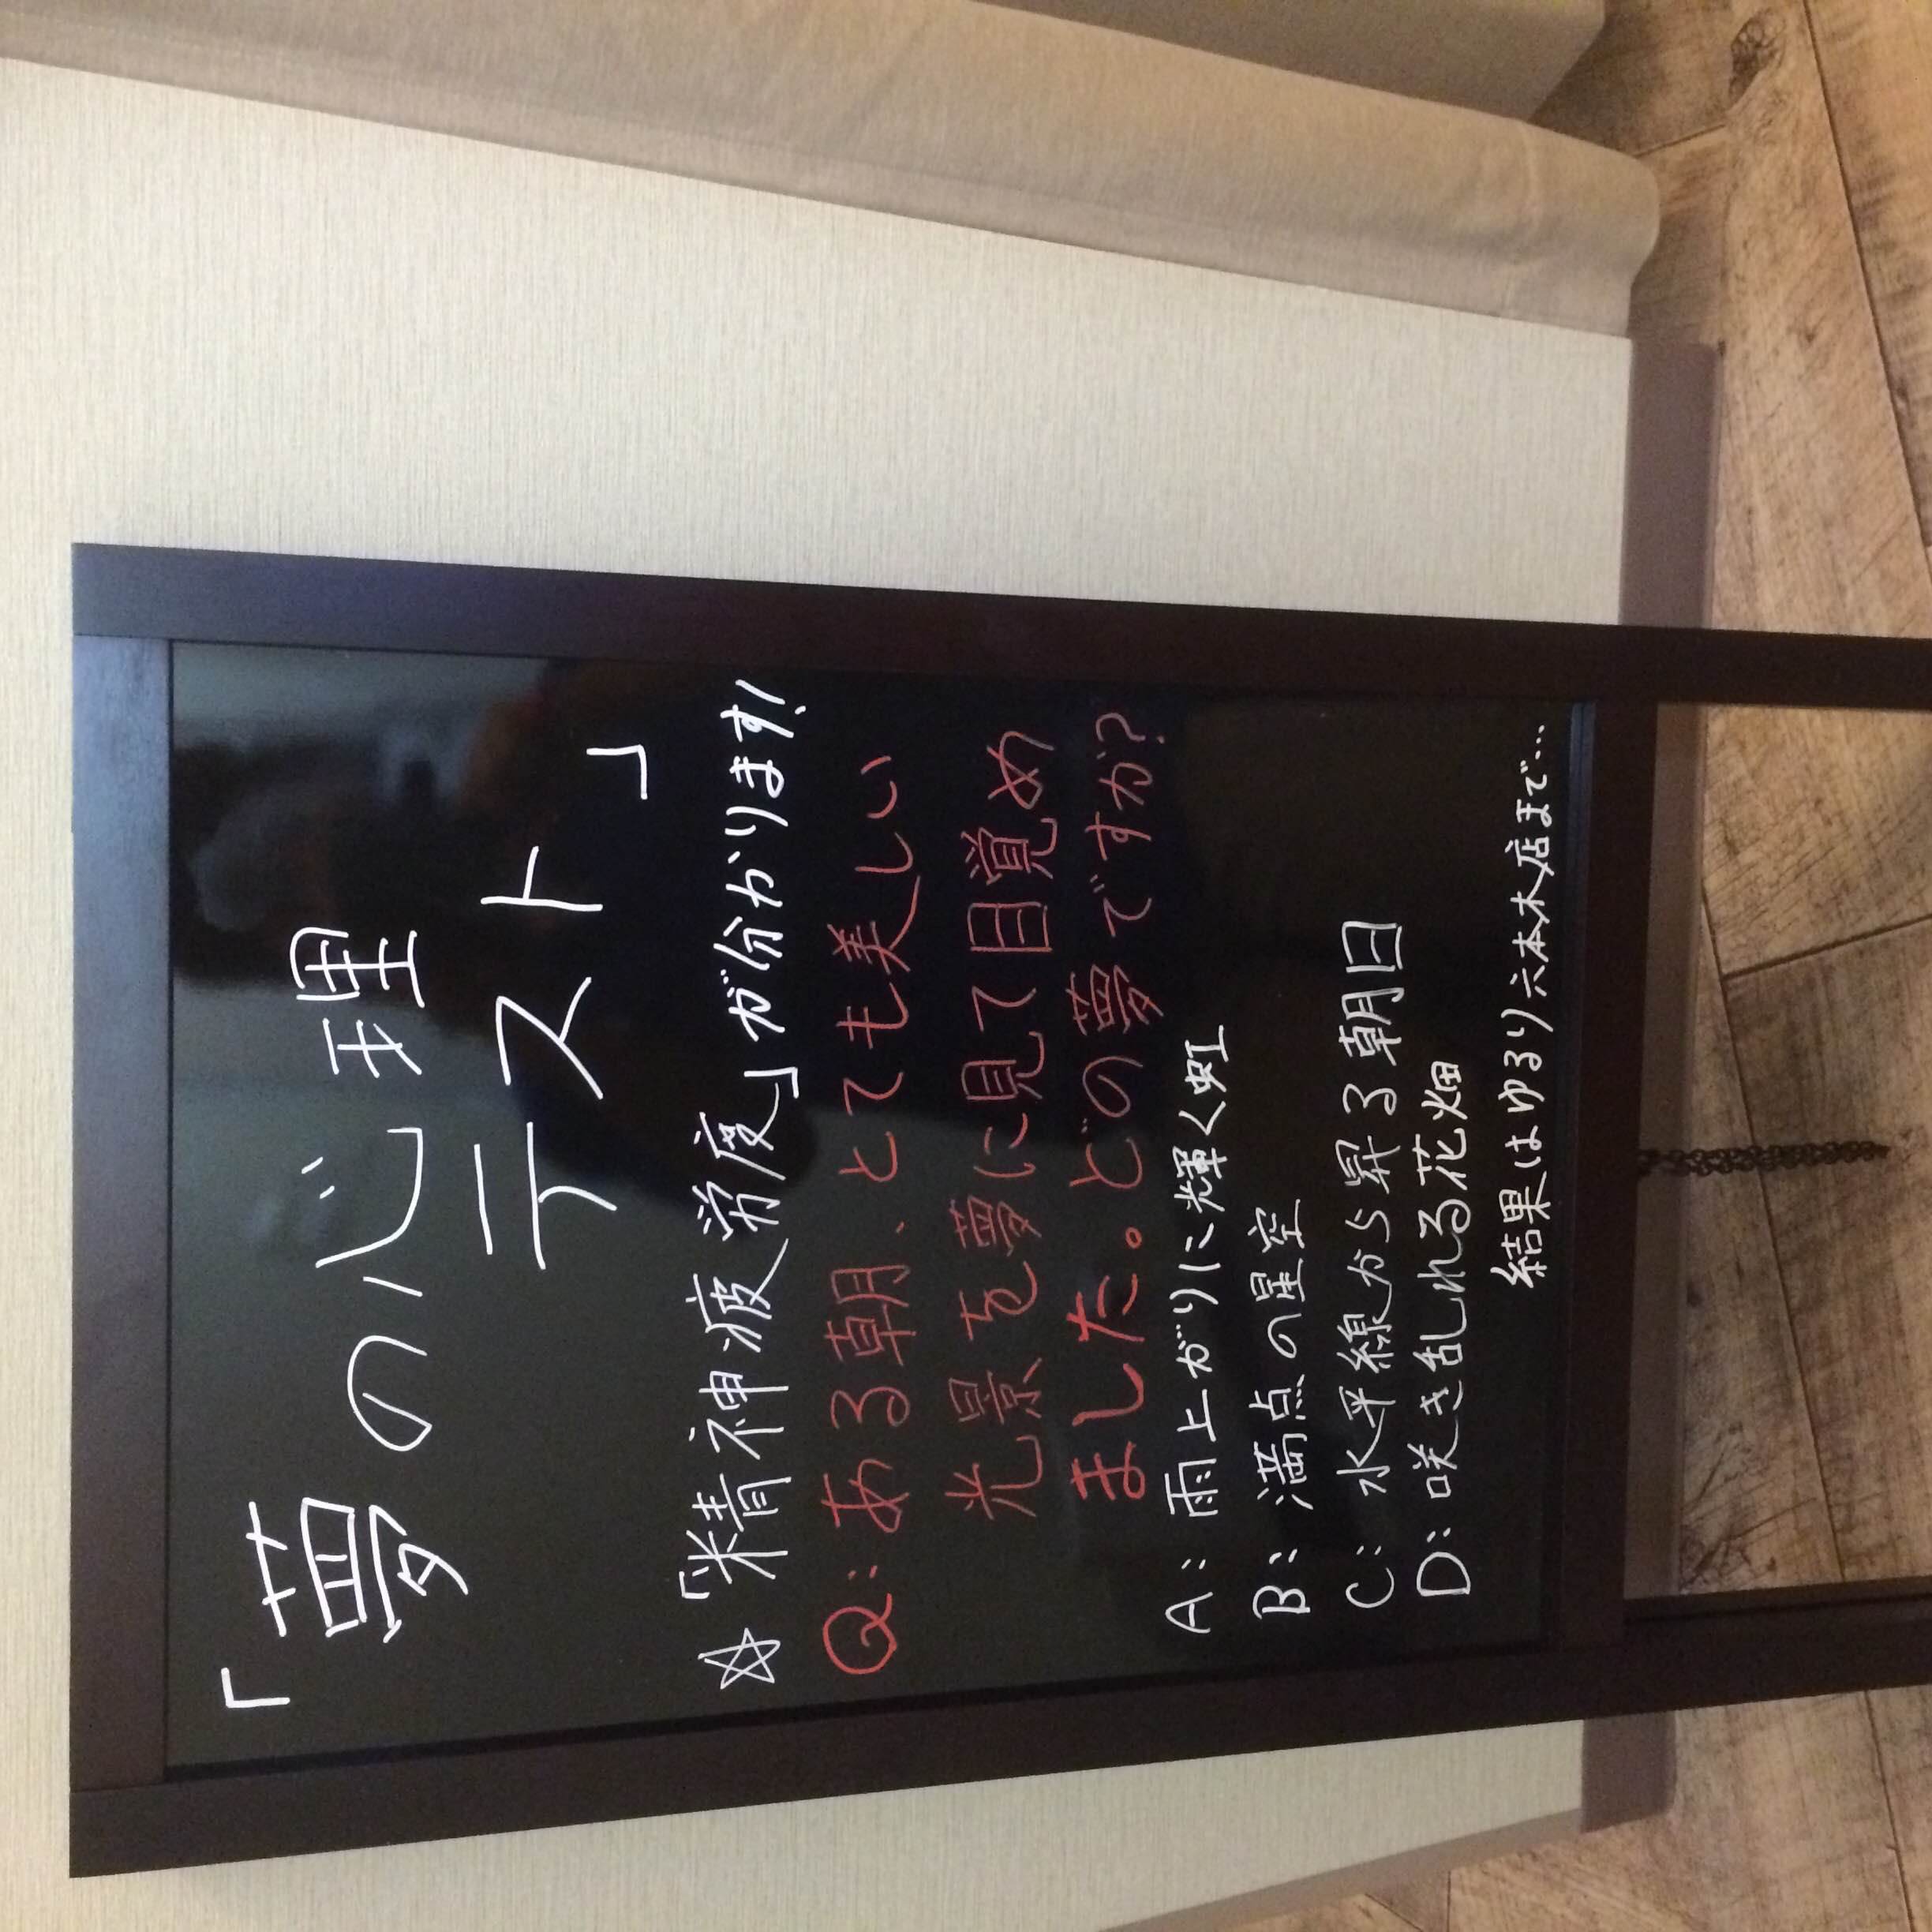 「夢の心理
テスト」
☆「精神疲労度」が分かります!
Q:ある朝、とても美しい
光景を夢に見て目覚め
ました。どの夢ですか?
A:雨上がりに輝く虹
B:満点の星空
C:水平線から昇る朝日
D:咲き乱れる花畑
結果はゆるり六本木店まで…